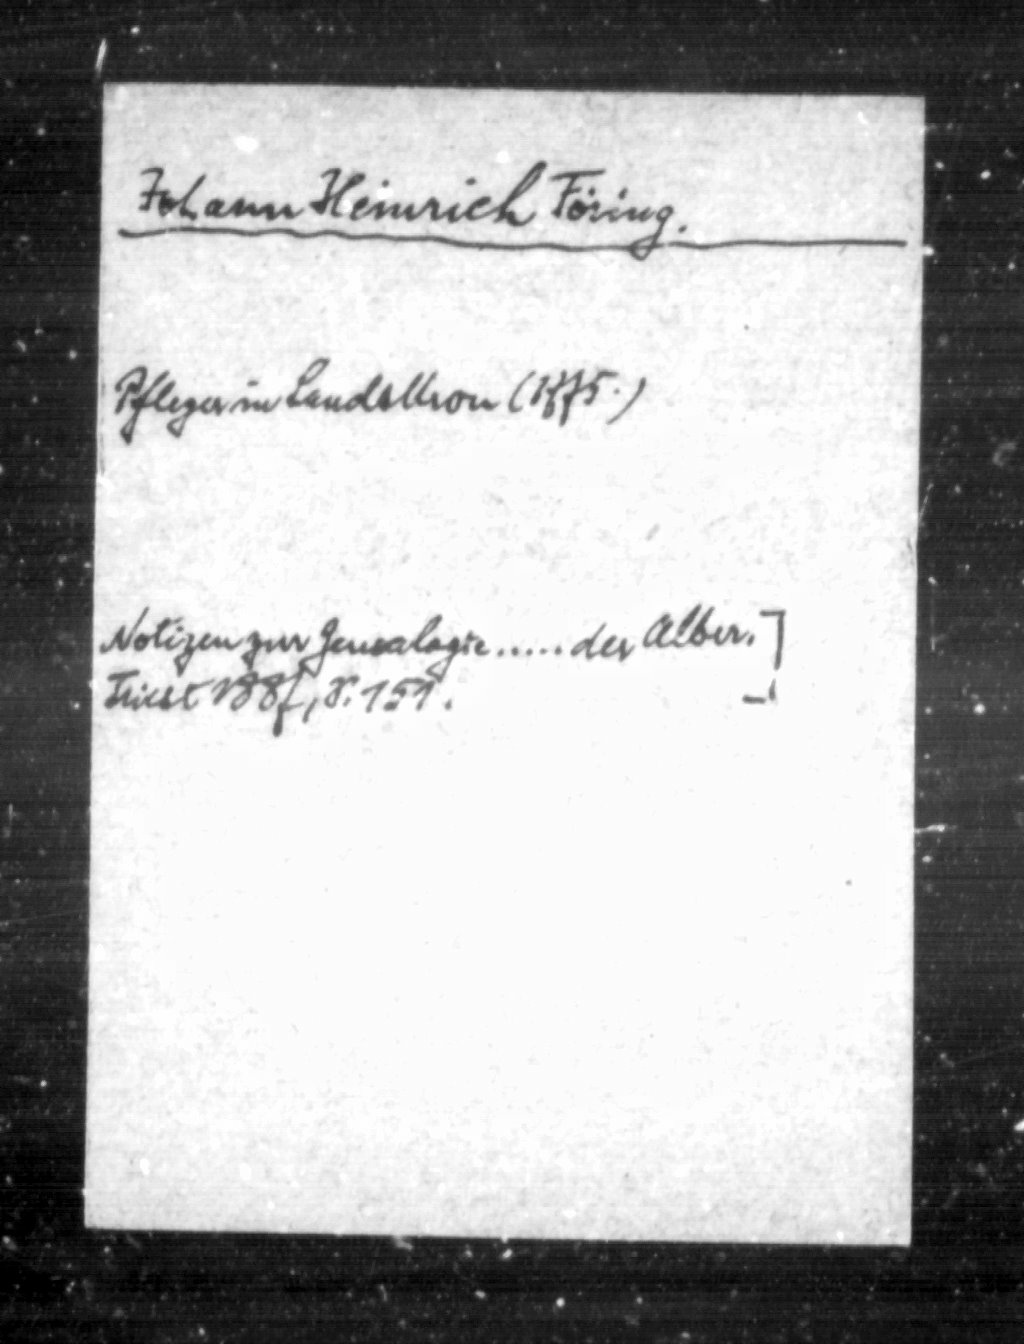 Johann Heinrich Föring.
Pfleger in Landskron (1775.)
Notizen zur Genealogie..... der Alber.]
Triest 1887, S. 151.